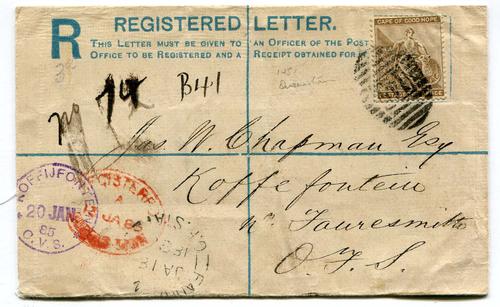 R REGISTERED LETTER.
THIS LETTER MUST BE GIVEN TO AN OFFICER OF THE POST
OFFICE TO BE REGISTERED AND A RECEIPT OBTAINED FOR
CAPE OF GOOD HOPE
B41
Jas W. Chapman Esq
Koffefontein
nr. Fauresmith
O. F. S.
KOFFIJFONTEIN
20 JAN
85
O.V.S.
REGISTERED
A
JA